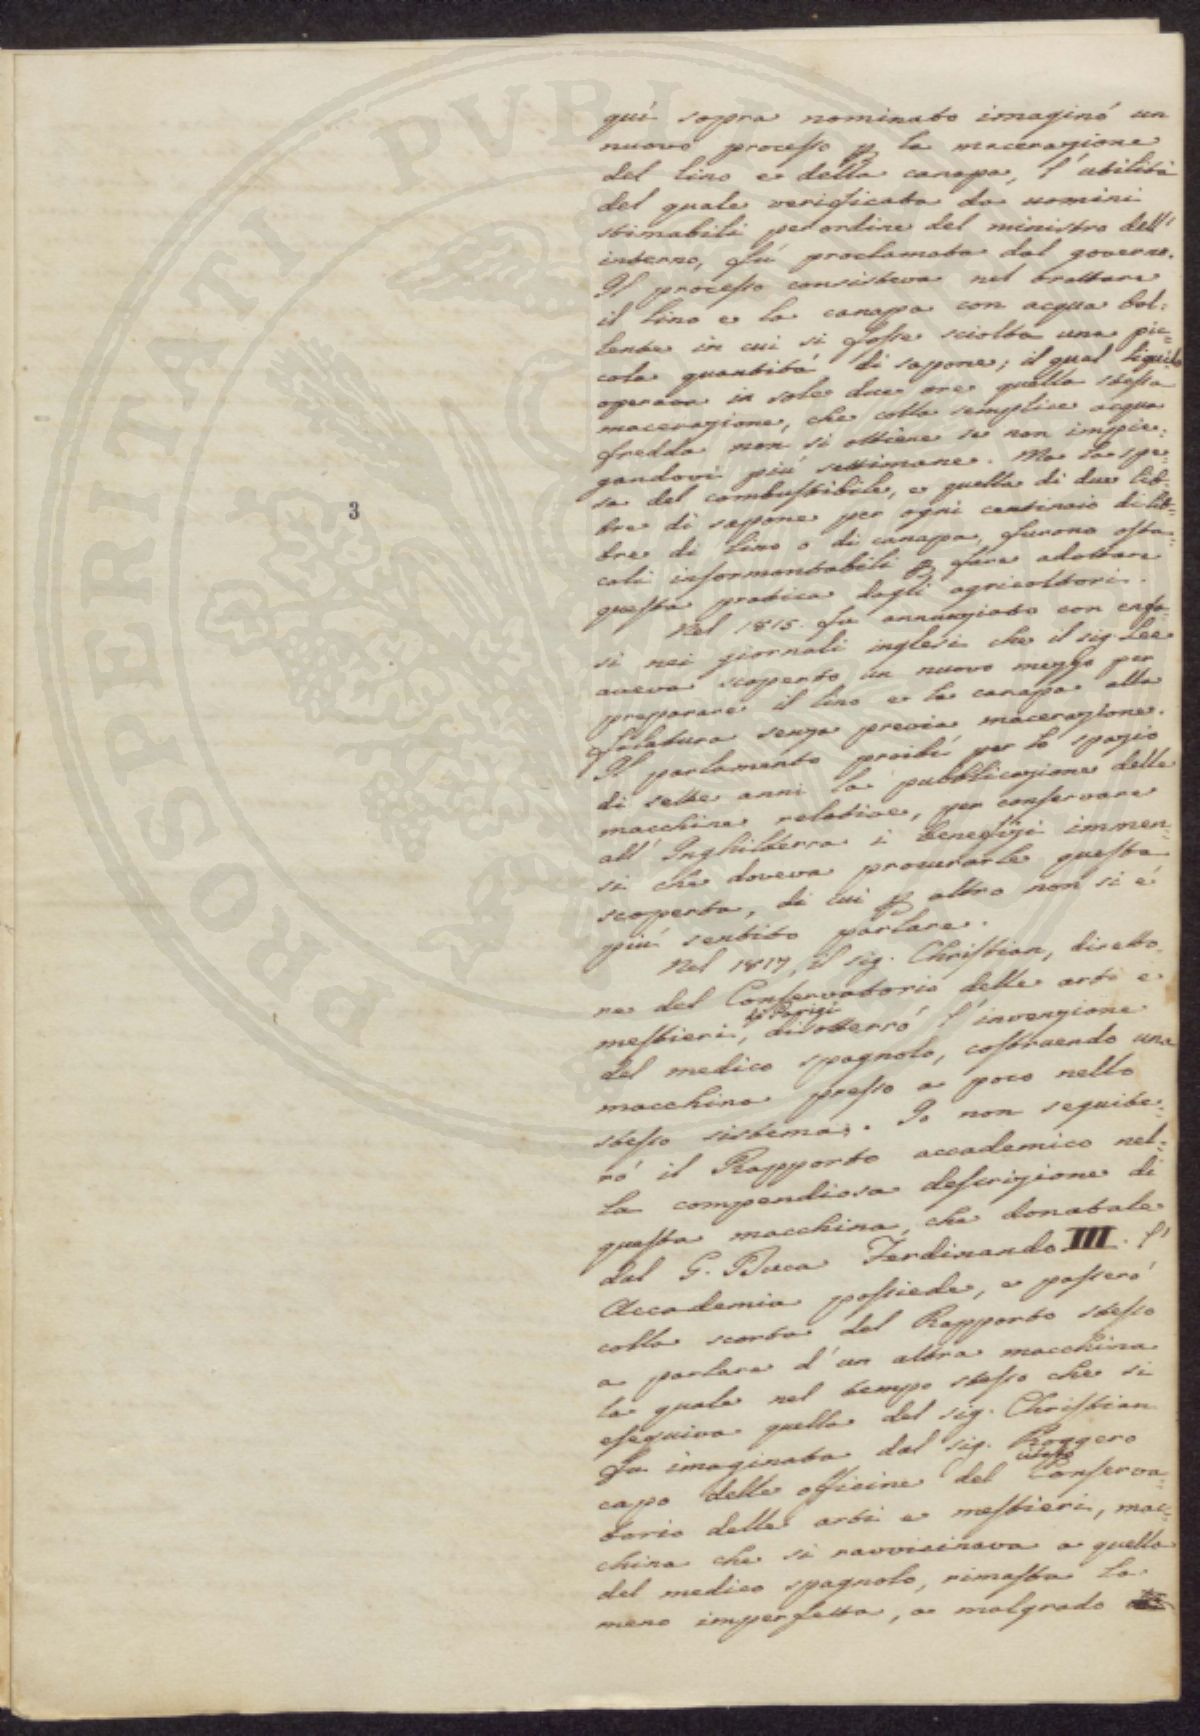 PROSPERITATI PVBLI
3
quì sopra nominato imaginò un
nuovo processo p la macerazione
del lino e della canapa, l'utilità
del quale verificata da uomini
stimabili per ordine del ministro dell'
interno, fù proclamata dal governo.
Il processo consisteva nel trattare
il lino e la canapa con acqua bol:
lente in cui si fosse sciolta una pic:
cola quantità di sapone; il qual liquido
operava in sole due ore quella stessa
macerazione, che colla semplice acqua
fredda non si ottiene se non impie:
gandovi più settimane. Ma la spe:
sa del combustibile, e quella di due lib:
bre di sapone per ogni centinaio di lib:
bre di lino o di canapa, furono osta:
coli insormontabili p fare adottare
questa pratica dagli agricoltori.
Nel 1815. fu annunziato con enfa:
si nei giornali inglesi che il sig. Lee
aveva scoperto un nuovo mezzo per
preparare il lino e la canapa alla
filatura senza previa macerazione.
Il parlamento proibì per lo spazio
di sette anni la pubblicazione delle
macchine relative, per conservare
all'Inghilterra i benefizi immen:
si che doveva procurarle questa
scoperta, di cui p altro non si è
più sentito parlare.
Nel 1817, il sig. Christian, diretto:
re del Conservatorio delle arti e
mestieri, di Parigi disotterrò l'invenzione
del medico spagnolo, costruendo una
macchina presso a poco nello
stesso sistema. Io non seguite:
rò il Rapporto accademico nel:
la compendiosa descrizione di
questa macchina, che donatale
dal G. Duca Ferdinando III. l'
Accademia possiede, e passerò
colla scorta del Rapporto stesso
a parlare d'un altra macchina
la quale nel tempo stesso che si
eseguiva quella del sig. Christian
fu imaginata dal sig. Roggero
capo delle officine del citato Conserva:
torio delle arti e mestieri, mac:
china che si ravvicinava a quella
del medico spagnolo, rimasta la
meno imperfetta, a malgrado